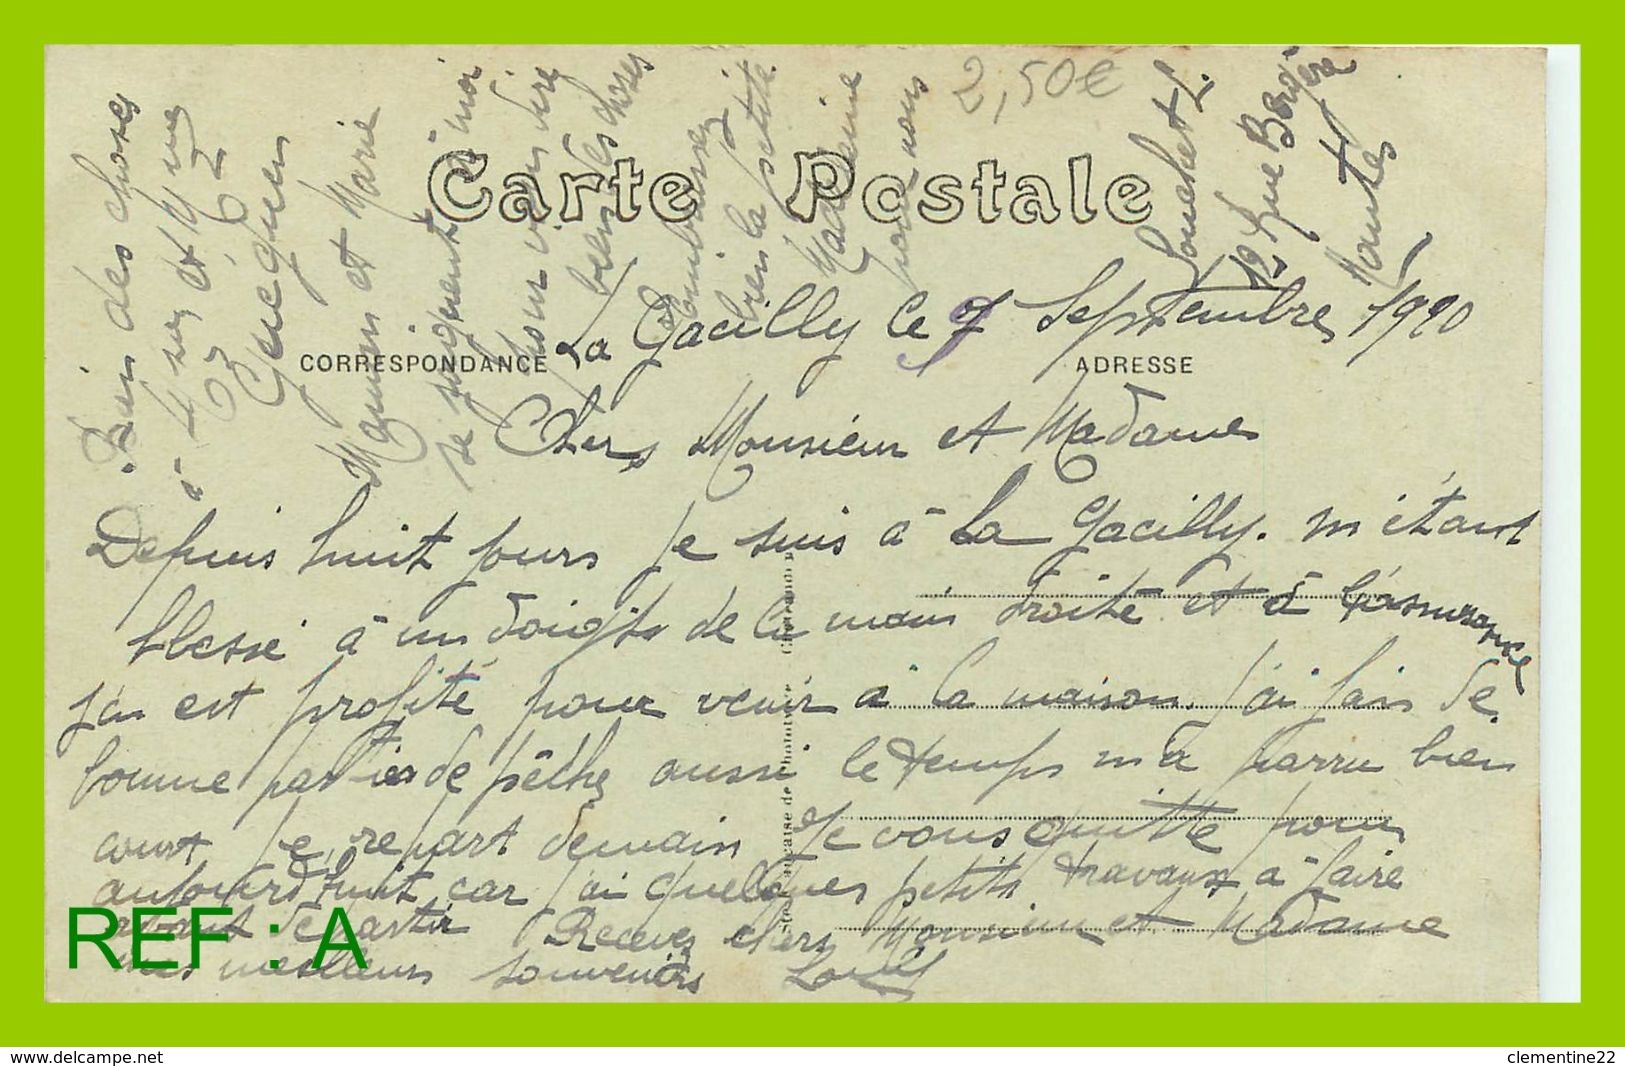 2,50€
Carte Postale
CORRESPONDANCE
ADRESSE
La Gacilly le 7 Septembre 1920
Chers Monsieur et Madame
Depuis huit jours je suis à La Gacilly. m'étant
blessé à un doigts de la main droite et à l'assurance
j'en est profité pour venir à la maison. j'ai fais de
bonne parties de pêche aussi le temps m'a parru bien
court je repart demain Je vous quitte pour
aujourd'huit car j'ai quelques petits travaux à faire
avant de partir Recevez chers Monsieur et Madame
mes meilleurs souvenirs Louis
Bien des choses
à Mr et Mme
Gueguen
Maman et Marie
se joignent à moi
pour vous dire
bien des choses
Embrassez
bien la petite
Madeleine
pour nous
Louchet L.
12 Rue
Nantes
REF : A
www.delcampe.net
clementine22